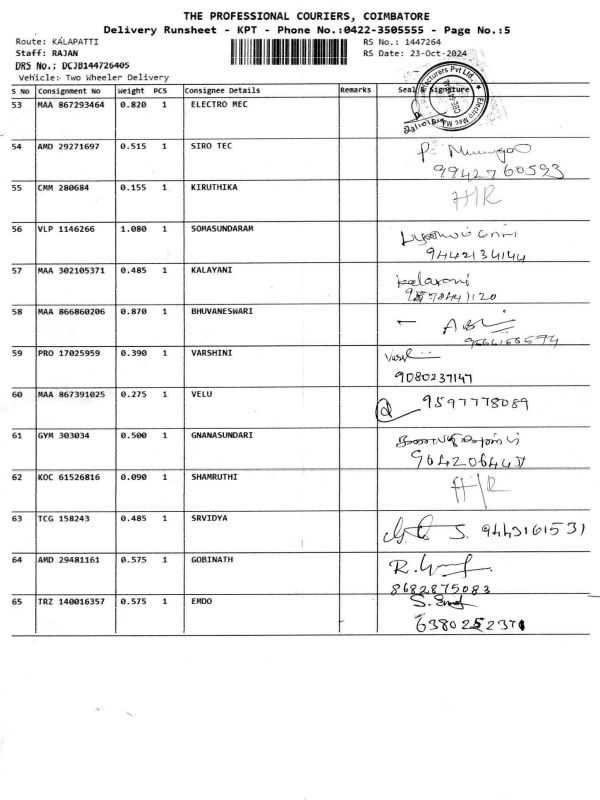 THE PROFESSIONAL COURIERS, COIMBATORE
Delivery Runsheet - KPT - Phone No.:0422-3505555 - Page No.:5
Route: KALAPATTI RS No.: 1447264
Staff: RAJAN RS Date: 23-Oct-2024
DRS No.: DCJB144726405
Vehicle: Two Wheeler Delivery
S No Consignment No Weight PCS Consignee Details Remarks Seal & Signature
53 MAA 867293464 0.820 1 ELECTRO MEC
54 AMD 29271697 0.515 1 SIRO TEC
9942760593
55 CMM 280684 0.155 1 KIRUTHIKA H/R
56 VLP 1146266 1.080 1 SOMASUNDARAM
9442134144
57 MAA 302105371 0.485 1 KALAYANI Kalayani
58 MAA 866860206 0.870 1 BHUVANESWARI
59 PRO 17025959 0.390 1 VARSHINI
9080237147
60 MAA 867391025 0.275 1 VELU 9597778089
61 GYM 303034 0.500 1 GNANASUNDARI
62 KOC 61526816 0.090 1 SHAMRUTHI H/R
63 TCG 158243 0.485 1 SRVIDYA S. 9443161531
64 AMD 29481161 0.575 1 GOBINATH
8682875083
65 TRZ 140016357 0.575 1 EMDO